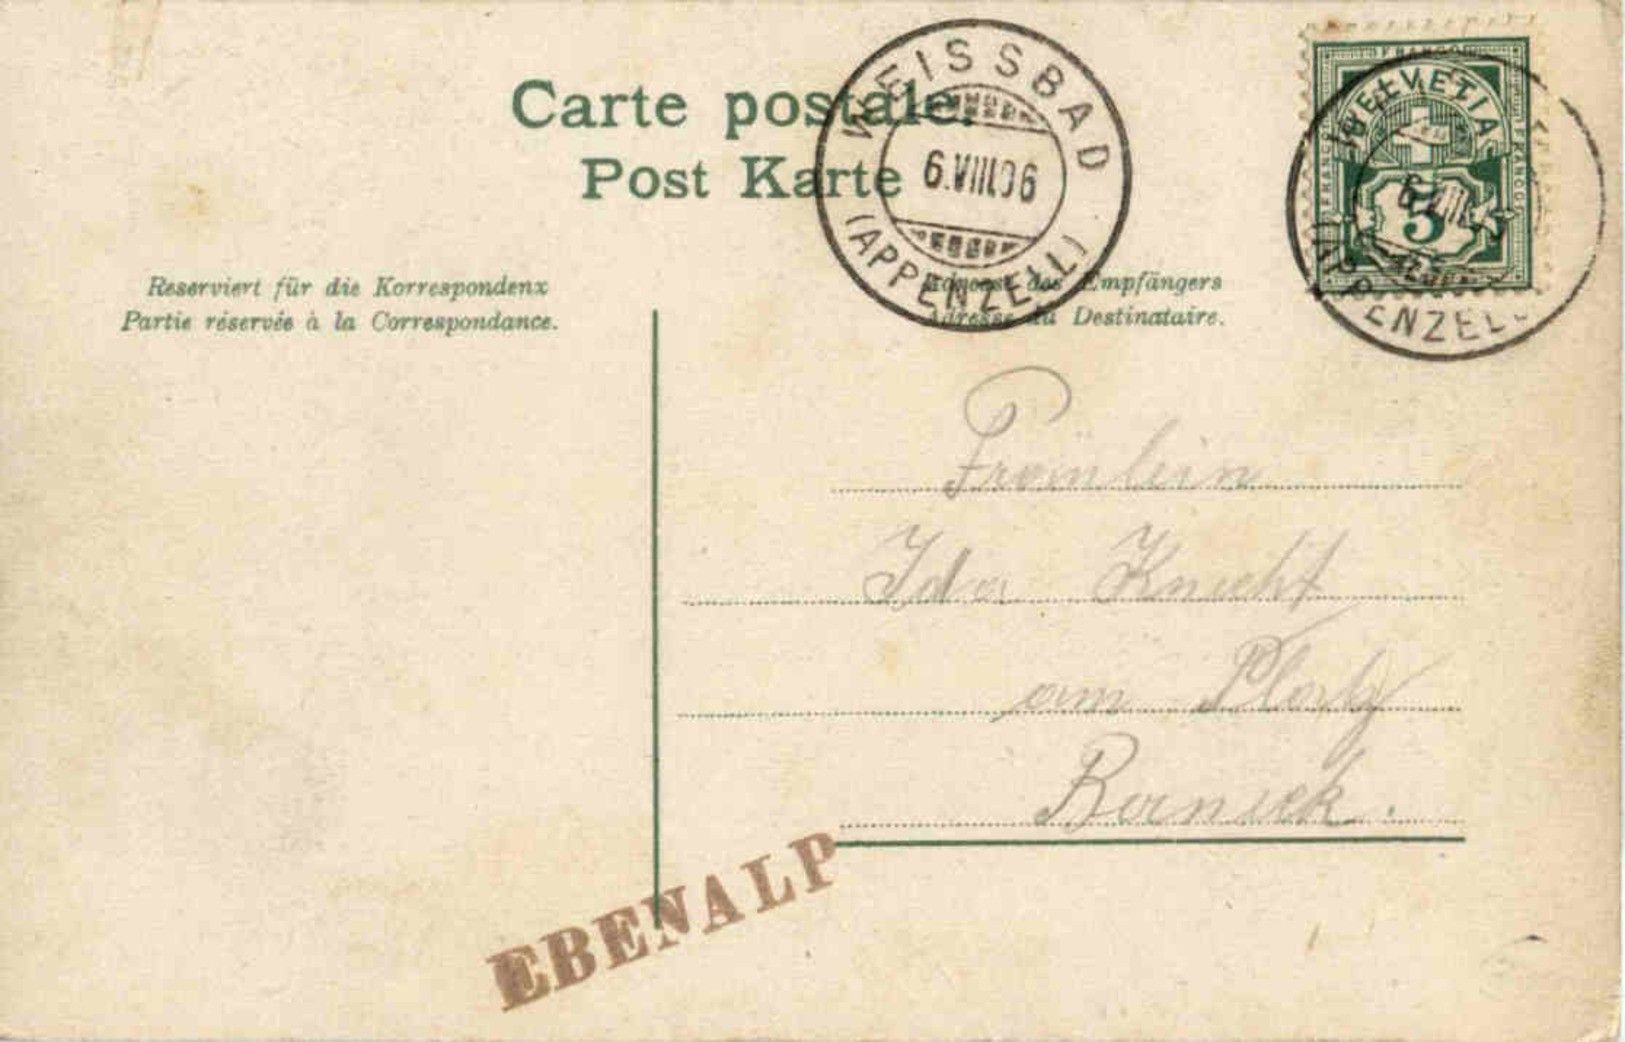 Carte postale.
Post Karte
WEISSBAD
6.VIII.06
(APPENZELL)
FRANCO
HELVETIA
FRANCO
FRANCO
5
6.VIII.
(APPENZELL
Reserviert für die Korrespondenz
Partie réservée à la Correspondance.
des Empfängers
Adresse du Destinataire.
Fräulein
Ida Knecht
am Platz
Berneck.
EBENALP